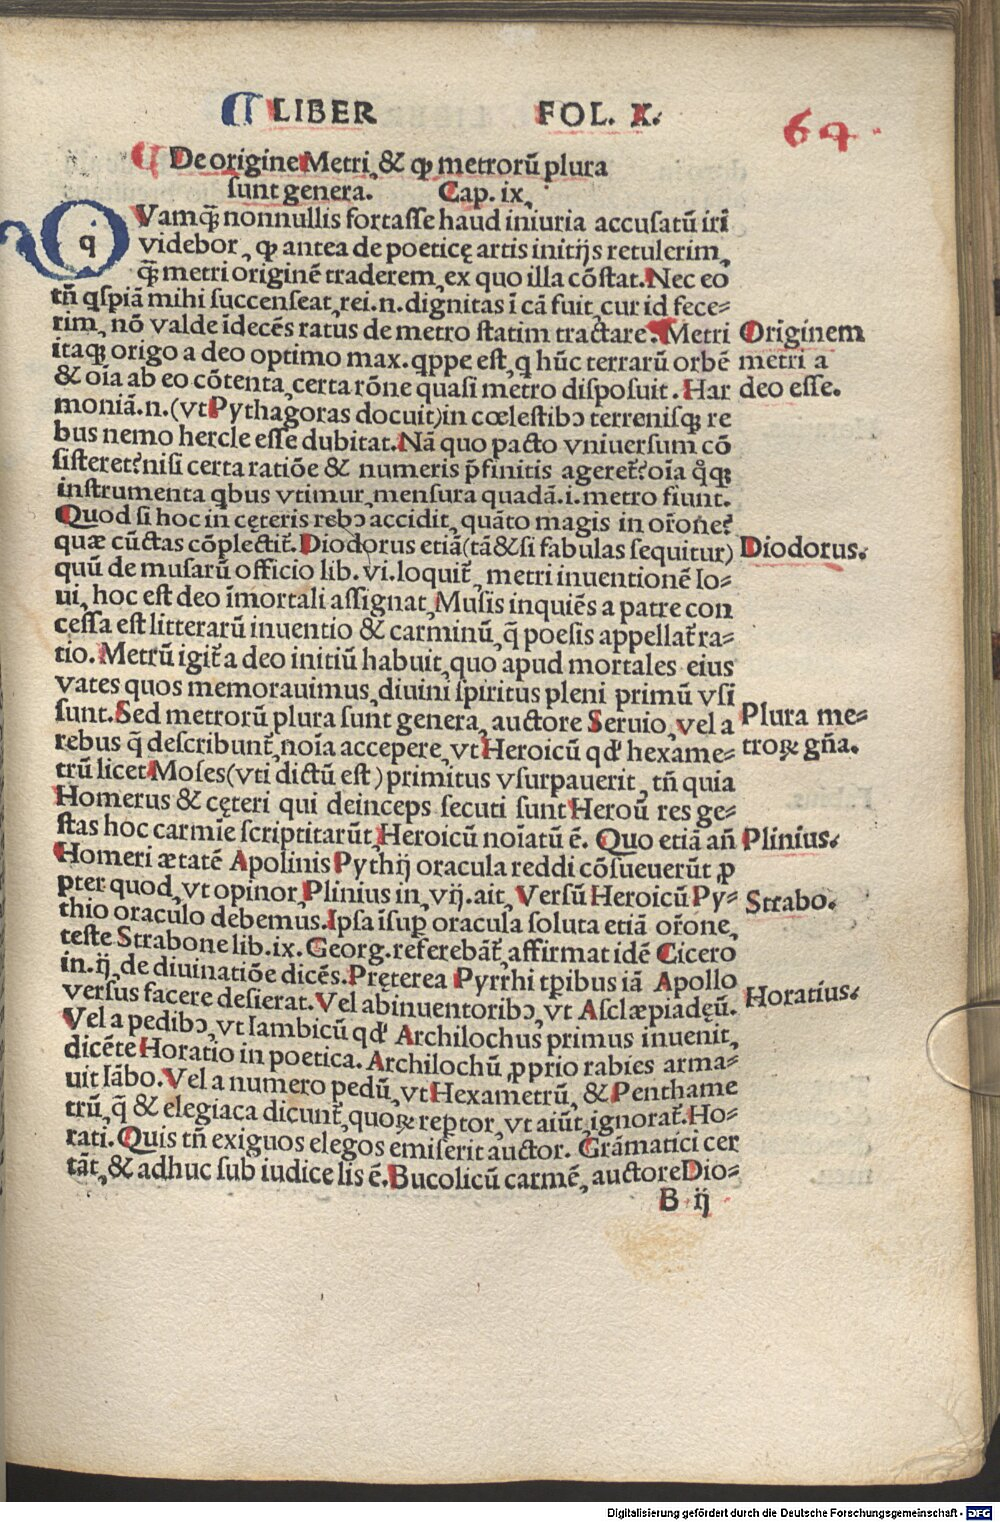 ¶ LIBER FOL. X.
64.
¶ De origine Metri, & ꝙ metrorū plura
sunt genera. Cap. ix.
q Vamq̄ȝ nonnullis fortasse haud iniuria accusatū iri
videbor, ꝙ antea de poeticę artis initijs retulerim,
q̄ȝ metri originē traderem, ex quo illa cōstat. Nec eo
tn̄ qspiā mihi succenseat, rei .n. dignitas ī cā fuit, cur id fece-
rim, nō valde īdecēs ratus de metro statim tractare. Metri
Originem
itaqȝ origo a deo optimo max. qppe est, q hūc terrarū orbē
metri a
& oīa ab eo cōtenta, certa rōne quasi metro disposuit. Har
deo esse.
moniā .n. (vt Pythagoras docuit) in cœlestibꝰ terrenisqȝ re
bus nemo hercle esse dubitat. Nā quo pacto vniuersum cō
sisteret? nisi certa ratiōe & numeris p̄finitis ageret̄? oīa q̊qȝ
instrumenta qbus vtimur, mensura quadā .i. metro fiunt.
Quod si hoc in cęteris rebꝰ accidit, quāto magis in or̄one?
quæ cūctas cōplectit̄. Diodorus etiā (tā & si fabulas sequitur)
Diodorus.
quū de musarū officio lib. vi. loquit̄, metri inuentionē Io-
ui, hoc est deo īmortali assignat, Musis inquiēs a patre con
cessa est litterarū inuentio & carminū, q̄ poesis appellat̄ ra-
tio. Metrū igit̄ a deo initiū habuit, quo apud mortales eius
vates quos memorauimus, diuini spiritus pleni primū vsi
sunt. Sed metrorū plura sunt genera, auctore Seruio, vel a
Plura me-
rebus q̄ describunt̄, noīa accepere, vt Heroicū qd' hexame-
troꝝ gn̄a.
trū licet Moses (vti dictū est) primitus vsurpauerit, tn̄ quia
Homerus & cęteri qui deinceps secuti sunt Heroū res ge-
stas hoc carmīe scriptitarūt, Heroicū noīatū ē. Quo etiā an̄
Plinius.
Homeri ætatē Apolinis Pythij oracula reddi cōsueuerūt, ꝓ
pter quod, vt opinor, Plinius in .vij. ait, Versū Heroicū Py-
Strabo.
thio oraculo debemus. Ipsa īsuꝑ oracula soluta etiā or̄one,
teste Strabone lib. ix. Georg. referebāt̄, affirmat idē Cicero
in .ij. de diuinatiōe dicēs. Pręterea Pyrrhi tꝑibus iā Apollo
versus facere desierat. Vel ab inuentoribꝰ, vt Asclæpiadęū.
Horatius.
Vel a pedibꝰ, vt Iambicū qd' Archilochus primus inuenit,
dicēte Horatio in poetica. Archilochū ꝓprio rabies arma-
uit Iābo. Vel a numero pedū, vt Hexametrū, & Penthame
trū, q̄ & elegiaca dicunt̄, quoꝝ reꝑtor, vt aiūt, ignorat̄. Ho-
rati. Quis tn̄ exiguos elegos emiserit auctor. Grāmatici cer
tāt, & adhuc sub iudice lis ē. Bucolicū carmē, auctore Dio-
B ij
Digitalisierung gefördert durch die Deutsche Forschungsgemeinschaft - DFG